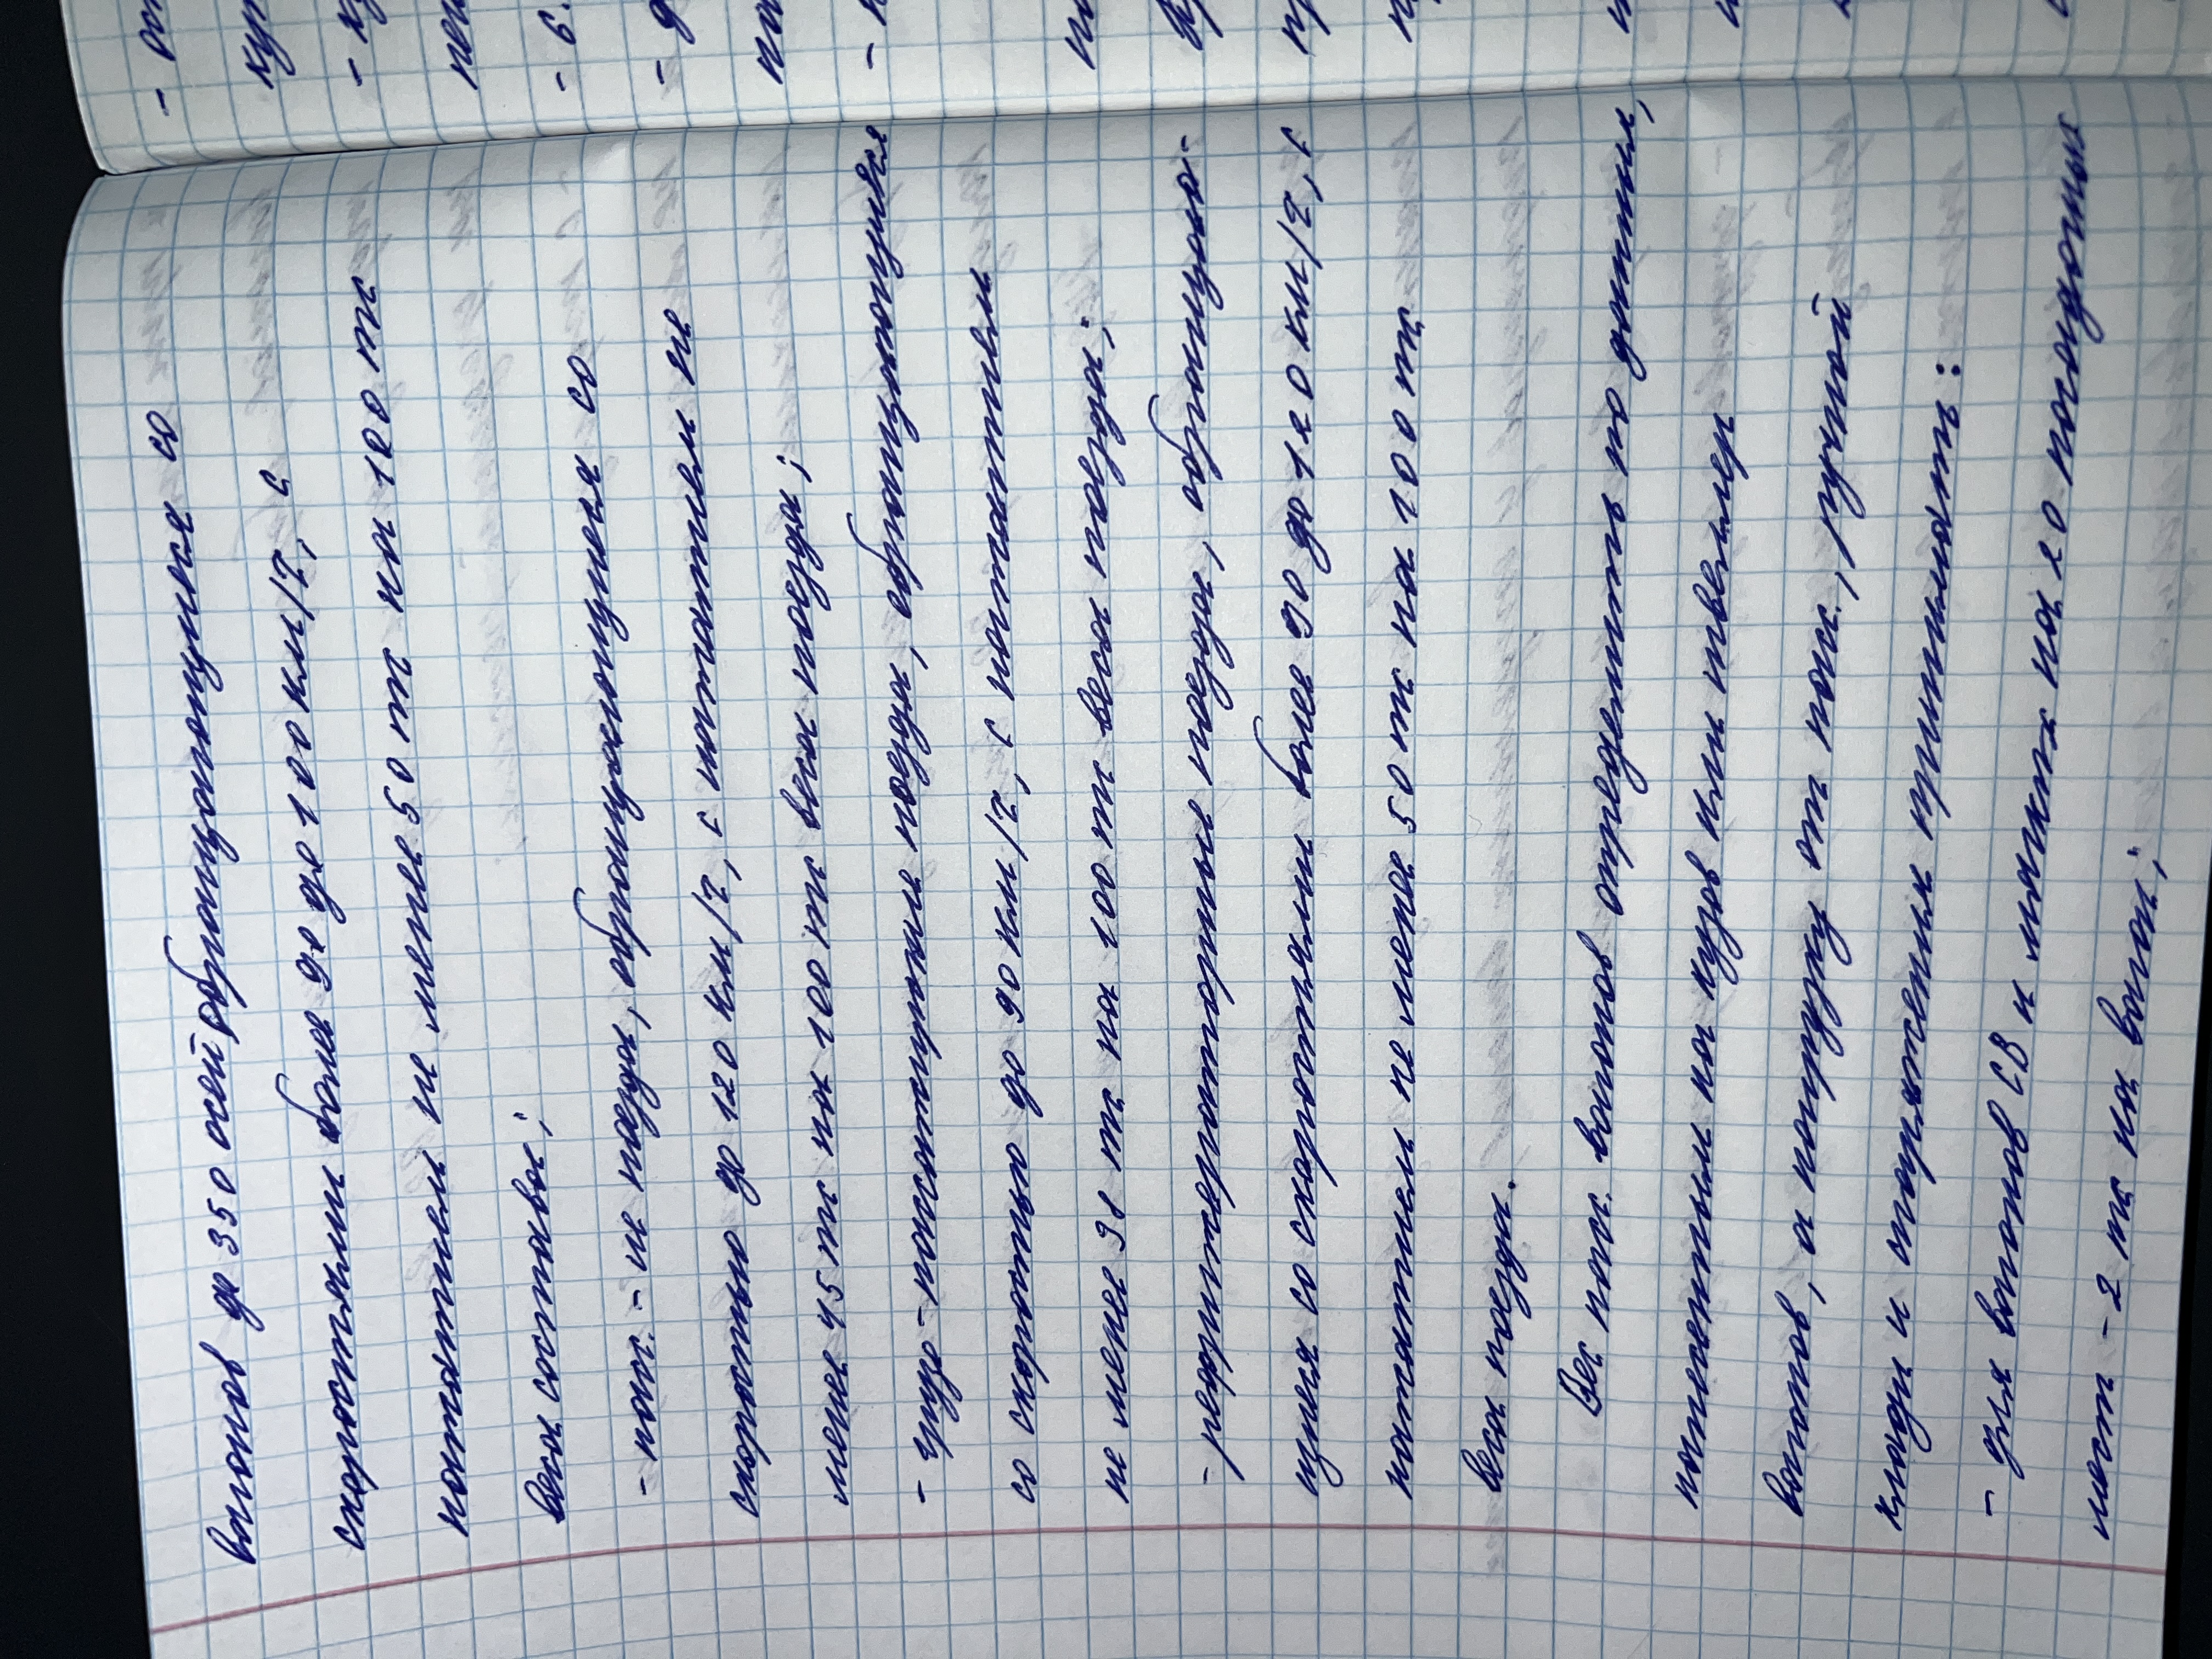 вагонов до 350 осей обращающиеся со
скоростями более 90 до 100 км/ч, с
нажатием не менее 50 тс на 100 тс
веса состава;
- пасс. - не поезда, обращающиеся со
скоростью до 120 км/ч, с нажатием не
менее 45 тс на 100 тс веса поезда;
- грузо-пассажирские поезда, обращающиеся
со скоростью до 90 км/ч, с нажатием
не менее 38 тс на 100 тс веса поезда;
- рефрижераторные поезда, обращаю-
щиеся со скоростями более 90 до 120 км/ч, с
нажатием не менее 50 тс на 100 тс
веса поезда.
Вес пасс. вагонов определить по данным,
нанесенным на кузов или швеллер
вагонов, а нагрузку от пасс., ручной
клади и снаряжения принимать:
- для вагонов СВ и мягких на 20 посадочных
мест - 2 тс на вагон;
- 
ку
- 
- 6.
-